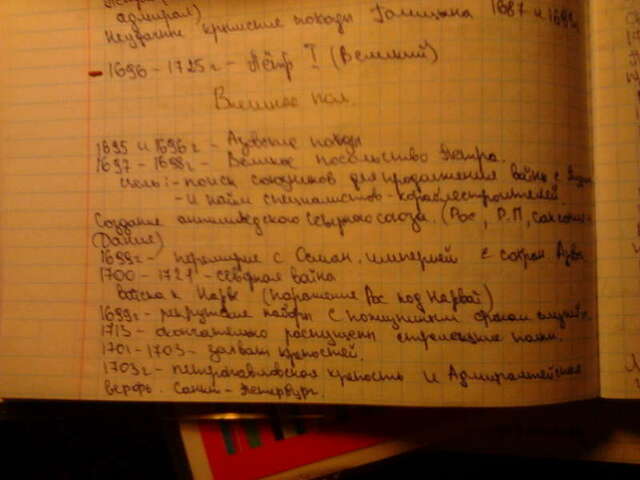 адмирал)
Неудачные крымские походы Голицына 1687 и 1689г
- 1696 - 1725 г - Пётр I (Великий)
Внешнее пол.
1695 и 1696 г - Азовские походы
1697 - 1698 г - Великое посольство Петра.
цель: - поиск союзников для продолжения войны с
- и найм специалистов - кораблестроителей.
Создание антишведского Северного союза. (Рос, Р.П, саксония-
Дания)
1699г - перемирие с Осман. империей с сохран. Азова
1700 - 1721 - северная война
войска к Нарве (поражение Рос под Нарвой)
1699г - рекрутские наборы с пожизненным сроком службы.
1713 - окончательно распущены стрелецкие полки.
1701 - 1703 - захват крепостей.
1703 г - петропавловская крепость и Адмиралтейская
верфь. Санкт - Петербург.